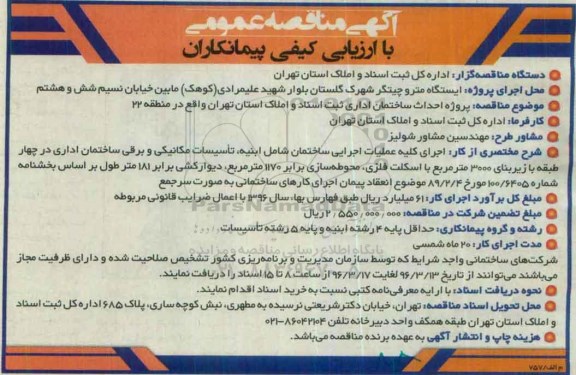 آگهی مناقصه عمومی
با ارزیابی کیفی پیمانکاران
دستگاه مناقصه‌گزار: اداره کل ثبت اسناد و املاک استان تهران
محل اجرای پروژه: ایستگاه مترو چیتگر شهرک گلستان بلوار شهید علیمرادی(کوهک) مابین خیابان نسیم شش و هشتم
موضوع مناقصه: پروژه احداث ساختمان اداری ثبت اسناد و املاک استان تهران واقع در منطقه ۲۲
کارفرما: اداره کل ثبت اسناد و املاک استان تهران
مشاور طرح: مهندسین مشاور شولیز
شرح مختصری از کار: اجرای کلیه عملیات اجرایی ساختمان شامل ابنیه، تأسیسات مکانیکی و برقی ساختمان اداری در چهار
طبقه با زیربنای ۳۰۰۰ مترمربع با اسکلت فلزی، محوطه‌سازی برابر ۱۱۷۰ مترمربع، دیوارکشی برابر ۱۸۱ متر طول بر اساس بخشنامه
شماره ۱۰۰/۶۴۰۵ مورخ ۸۹/۲/۴ موضوع انعقاد پیمان اجرای کارهای ساختمانی به صورت سرجمع
مبلغ کل برآورد اجرای کار: ۶۱ میلیارد ریال طبق فهارس بهاء سال ۱۳۹۶ با اعمال ضرایب قانونی مربوطه
مبلغ تضمین شرکت در مناقصه: ۲/۵۵۰/۰۰۰/۰۰۰ ریال
رشته و گروه پیمانکاری: حداقل پایه ۴ رشته ابنیه و پایه ۵ رشته تأسیسات
مدت اجرای کار: ۲۰ ماه شمسی
شرکت‌های ساختمانی واجد شرایط که توسط سازمان مدیریت و برنامه‌ریزی کشور تشخیص صلاحیت شده و دارای ظرفیت مجاز
می‌باشند می‌توانند از تاریخ ۹۶/۳/۱۳ لغایت ۹۶/۳/۱۷ از ساعت ۸ تا ۱۵ اسناد را دریافت نمایند.
نحوه دریافت اسناد: با ارایه معرفی‌نامه کتبی نسبت به خرید اسناد اقدام نمایند.
محل تحویل اسناد مناقصه: تهران، خیابان دکتر شریعتی نرسیده به مطهری، نبش کوچه ساری، پلاک ۶۸۵ اداره کل ثبت اسناد
و املاک استان تهران طبقه همکف واحد دبیرخانه تلفن ۸۶۰۴۲۱۰۴-۰۲۱
هزینه چاپ و انتشار آگهی به عهده برنده مناقصه می‌باشد.
ParsNamadData
پایگاه اطلاع رسانی مناقصه و مزایده